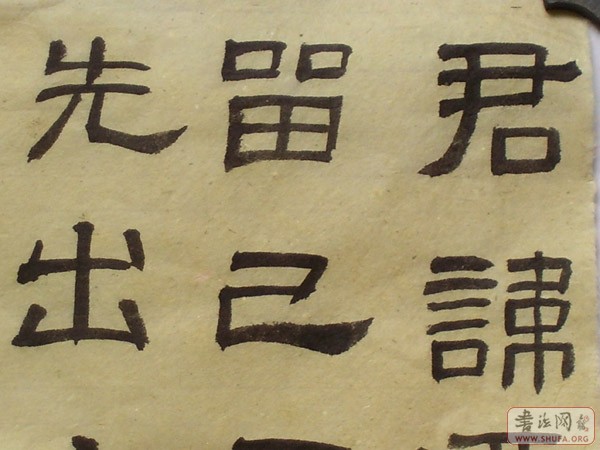 君諱
留己
先出
書法网
WWW.SHUFA.ORG